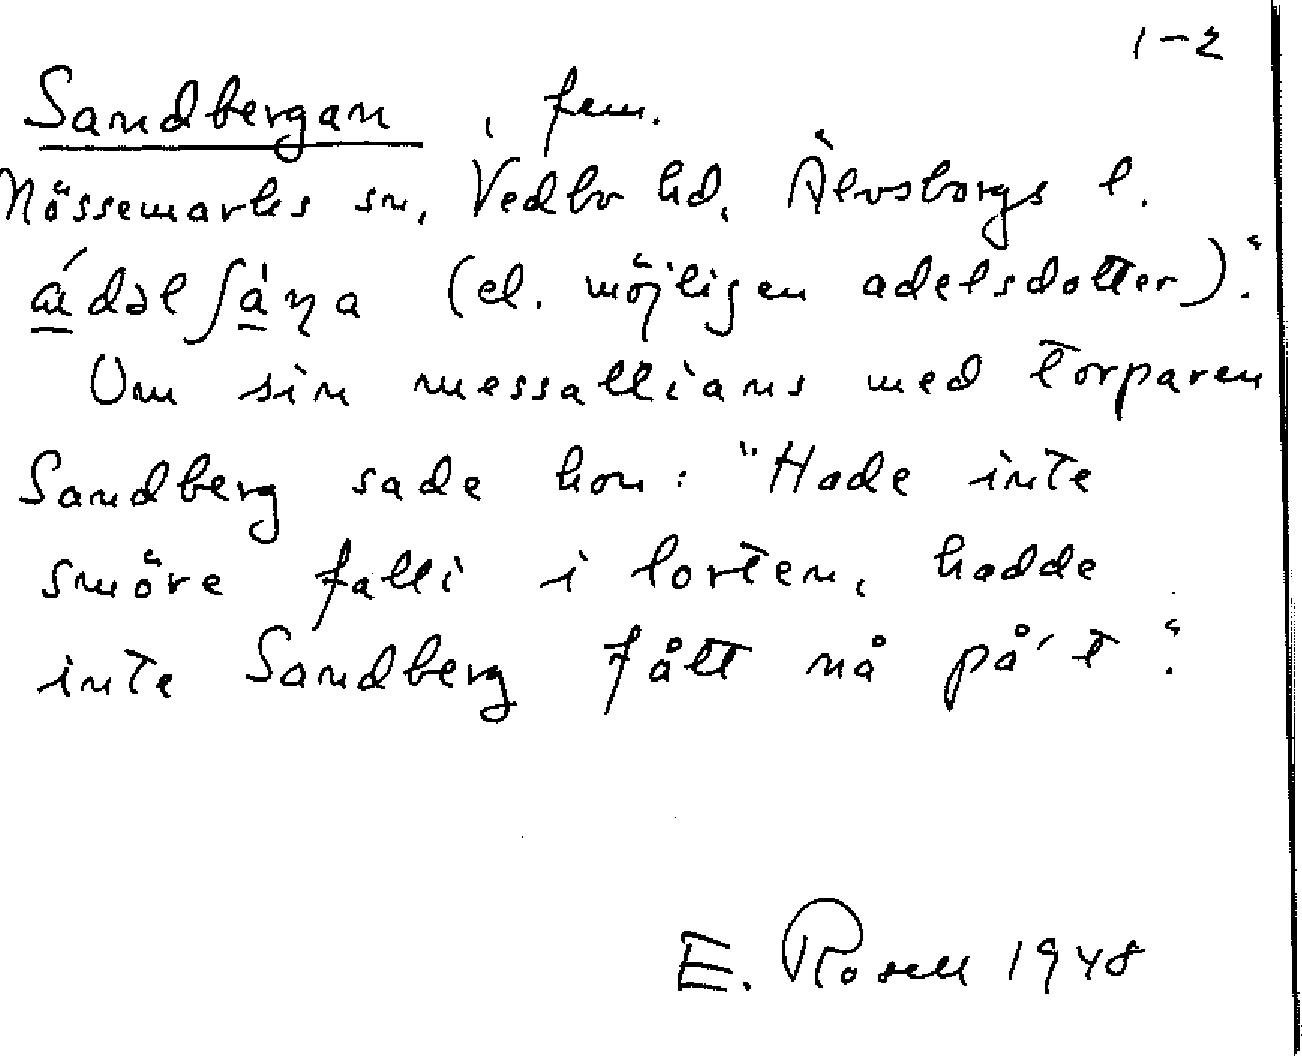 1-2
Sandbergan, fem.
Nössemarks sn, Vedbo hd, Älvsborgs l.
(el. möjligen adelsdotter)."
Om sin messallians med torparen
Sandberg sade hon: "Hade inte
smöre falli i lorten, hadde
inte Sandberg fått nå på't".
E. Rosell 1948